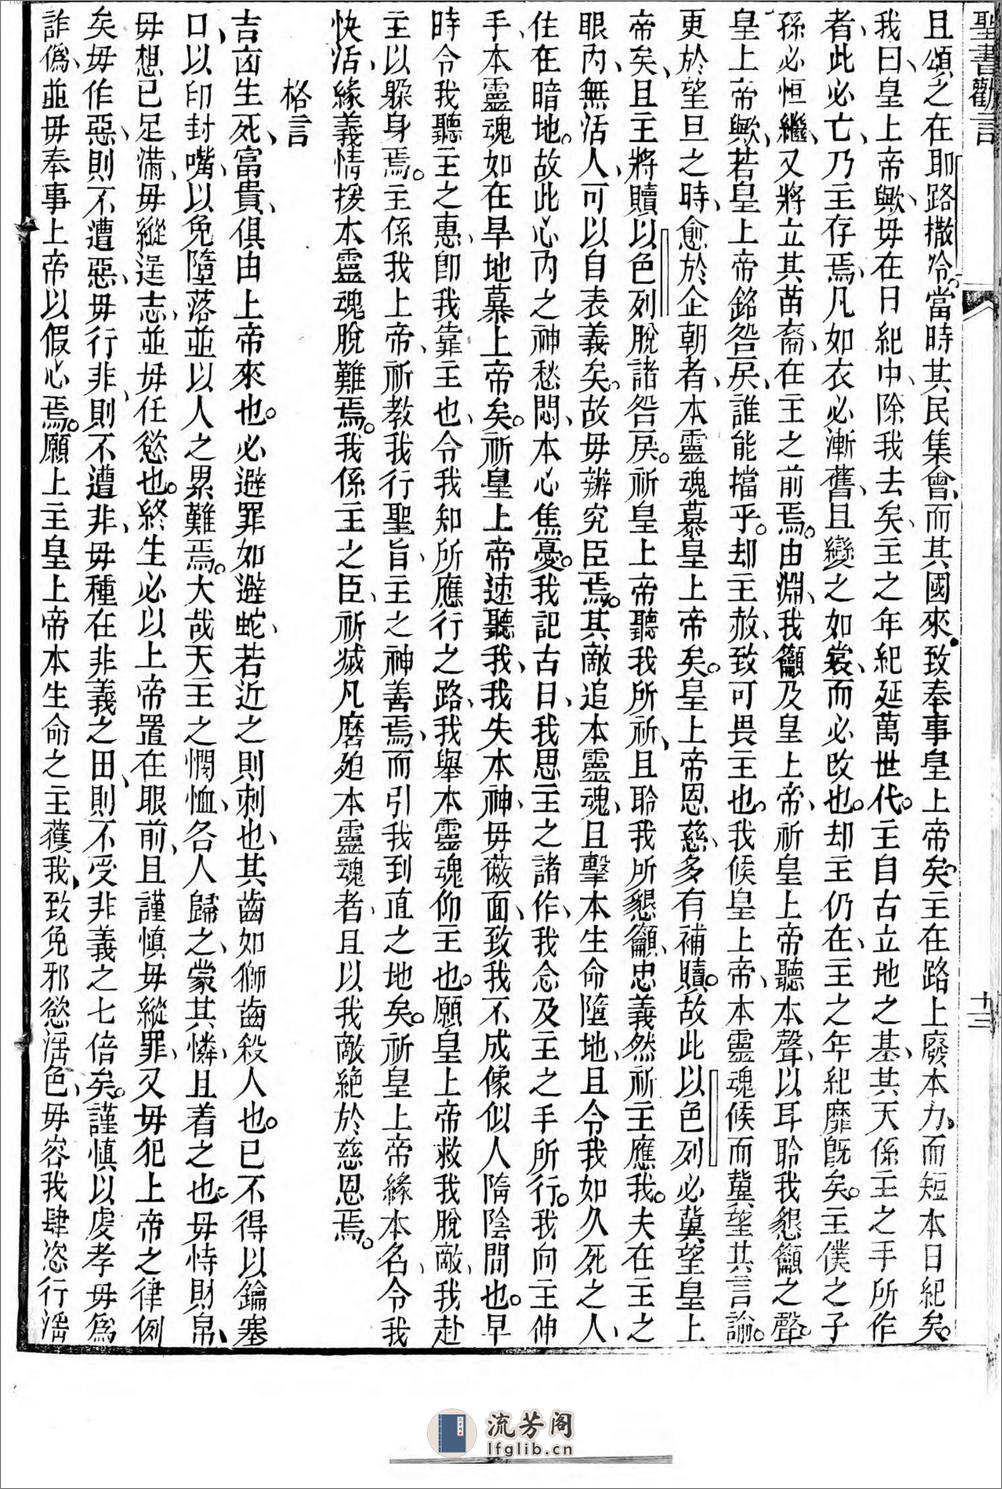 聖書勸言
且頌之在耶路撒冷、當時其民集會、而其國來、致奉事皇上帝矣、主在路上廢本力、而短本日紀矣。
我曰皇上帝歟、毋在日紀中、除我去矣、主之年紀延萬世代。主自古立地之基、其天係主之手所作
者、此必亡、乃主存焉、凡如衣必漸舊、且變之如裳、而必改也。却主仍在、主之年紀靡旣矣。主僕之子
孫必恒繼、又將立其苗裔、在主之前焉。由淵、我籲及皇上帝、祈皇上帝聽本聲、以耳聆我懇籲之聲。
皇上帝歟、若皇上帝銘咎戾、誰能擋乎。却主赦、致可畏主也。我候皇上帝、本靈魂候而冀望其言諭。
更於望旦之時、愈於企朝者、本靈魂慕皇上帝矣。皇上帝恩慈、多有補贖。故此以色列必冀望皇上
帝矣、且主將贖以色列脫諸咎戾。祈皇上帝聽我所祈、且聆我所懇籲、忠義然祈主應我。夫在主之
眼內、無活人、可以自表義矣。故毋辦究臣焉。其敵追本靈魂、且擊本生命墮地、且令我如久死之人、
住在暗地。故此心內之神愁悶、本心焦憂。我記古日、我思主之諸作、我念及主之手所行。我向主伸
手、本靈魂如在旱地慕上帝矣。祈皇上帝速聽我、我失本神、毋蔽面、致我不成像似人隋陰間也。早
時令我聽主之惠、卽我靠主也、令我知所應行之路、我舉本靈魂仰主也。願皇上帝救我脫敵、我赴
主以躲身焉。主係我上帝、祈敎我行聖旨、主之神善焉、而引我到直之地矣。祈皇上帝緣本名、令我
快活、緣義情援本靈魂脫難焉。我係主之臣、祈滅凡磨廹本靈魂者、且以我敵絕於慈恩焉。
格言
吉凶生死、富貴、俱由上帝來也。必避罪如避蛇、若近之則刺也、其齒如獅齒殺人也。已不得以鑰塞
口、以印封嘴、以免墮落、並以人之累難焉。大哉天主之憫恤、各人歸之、蒙其憐、且着之也。毋恃財帛、
毋想已足滿、毋縱逞志、並毋任慾也。終生必以上帝置在眼前、且謹慎毋縱罪、又毋犯上帝之律例
矣。毋作惡、則不遭惡、毋行非、則不遭非、毋種在非義之田、則不受非義之七倍矣。謹慎以虔孝、毋爲
詐僞、並毋奉事上帝以假心焉。願上主皇上帝本生命之主、獲我、致免邪慾淫色、毋容我肆恣行淫
十三
流芳阁
lfglib.cn